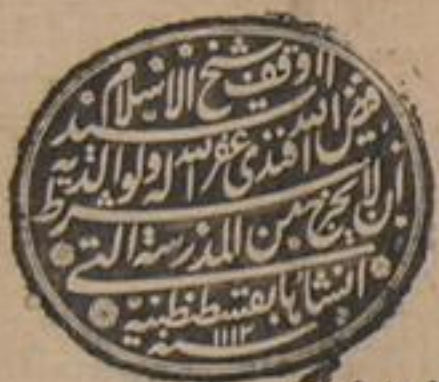 اوقف شيخ الاسلام السيد
فيض الله افندى غفر الله له ولوالديه
بشرط ان لا يخرج من المدرسة التى
انشاها بقسطنطينية
سنه ١١١٢